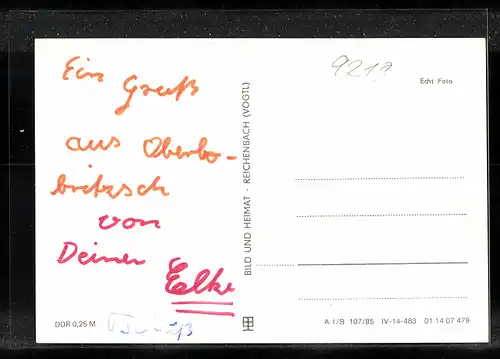 Ein Gruß
aus Oberbo-
britzsch
von
Deiner Elke
9217
Echt Foto
BILD UND HEIMAT - REICHENBACH (VOGTL)
DDR 0,25 M
A 1/B 107/85 IV-14-483 01 14 07 479